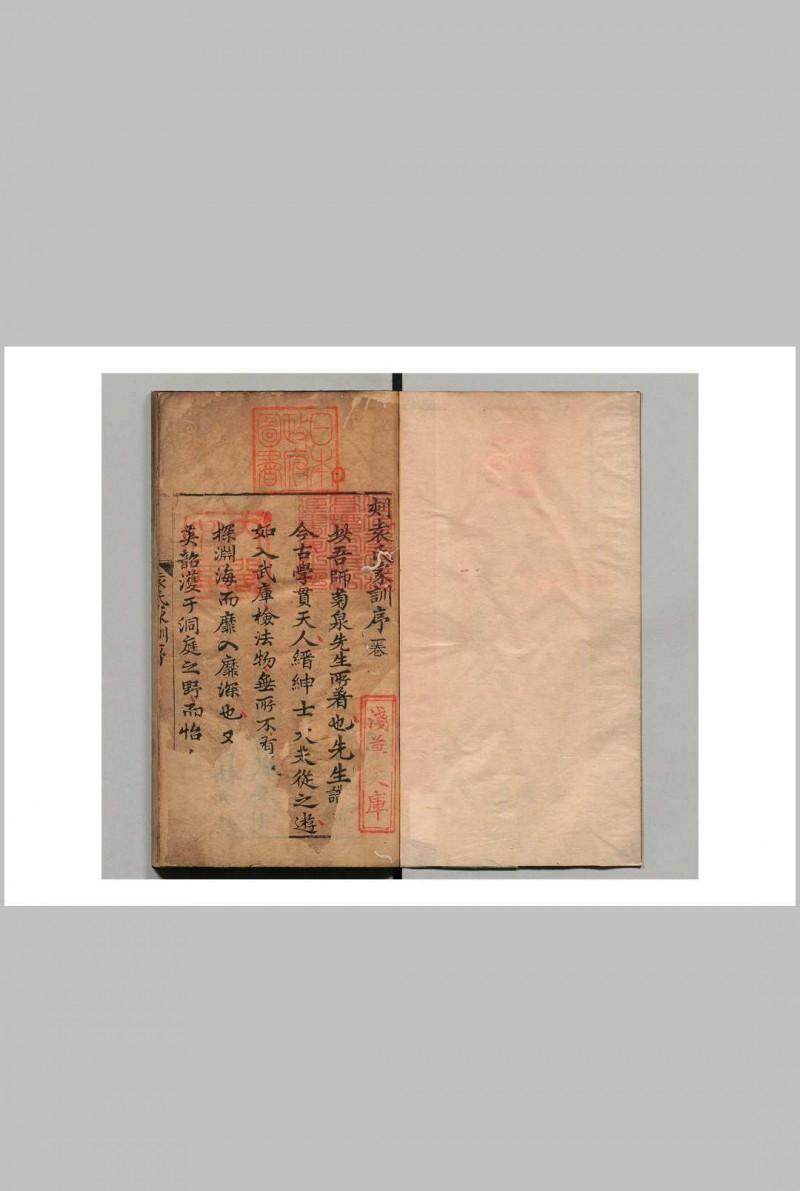 刻袁氏家訓序
吾師菊泉先生所著也先生
今古學貫天人縉紳士大夫從之遊
如入武庫檢法物無所不有
探淵海而靡入靡深也又
英韶濩于洞庭之野而怡
袁氏家訓序
日本
政府
圖書
淺草文庫